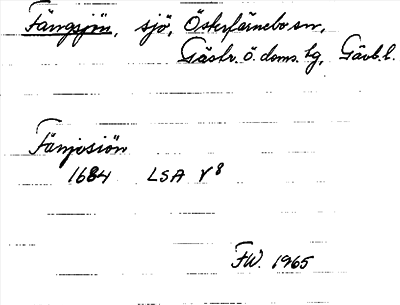 Fängsjön, sjö, Österfärnebo sn,
Gästr. ö. doms. tg, Gävb. l.
Fänjosiön
1684 LSA V8
FW. 1965